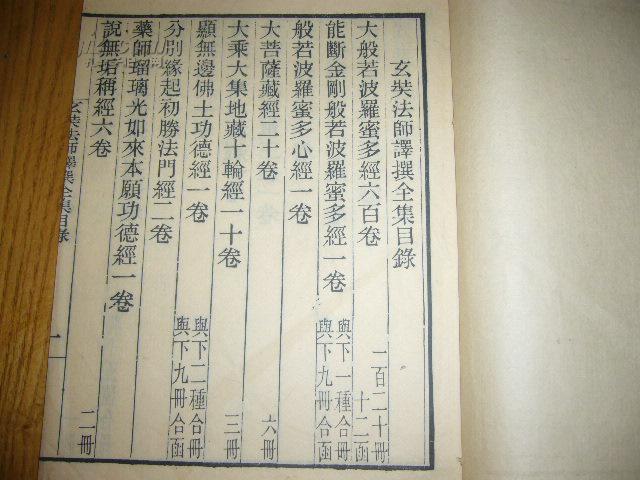 玄奘法師譯撰全集目錄
大般若波羅蜜多經六百卷
一百二十冊
十二函
能斷金剛般若波羅蜜多經一卷
與下一種合冊
與下九冊合函
般若波羅蜜多心經一卷
大菩薩藏經二十卷
六冊
大乘大集地藏十輪經一十卷
三冊
顯無邊佛土功德經一卷
與下二種合冊
與下九冊合函
分別緣起初勝法門經二卷
藥師瑠璃光如來本願功德經一卷
說無垢稱經六卷
二冊
玄奘法師譯撰全集目錄
一